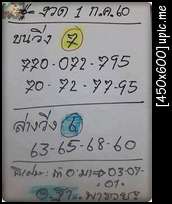 งวด 1 ก.ค. 60
บนวิ่ง 7
770-072-795
70-72-77-95
ล่างวิ่ง 6
63-65-68-60
03-07-
-01-
[450x600] upic.me